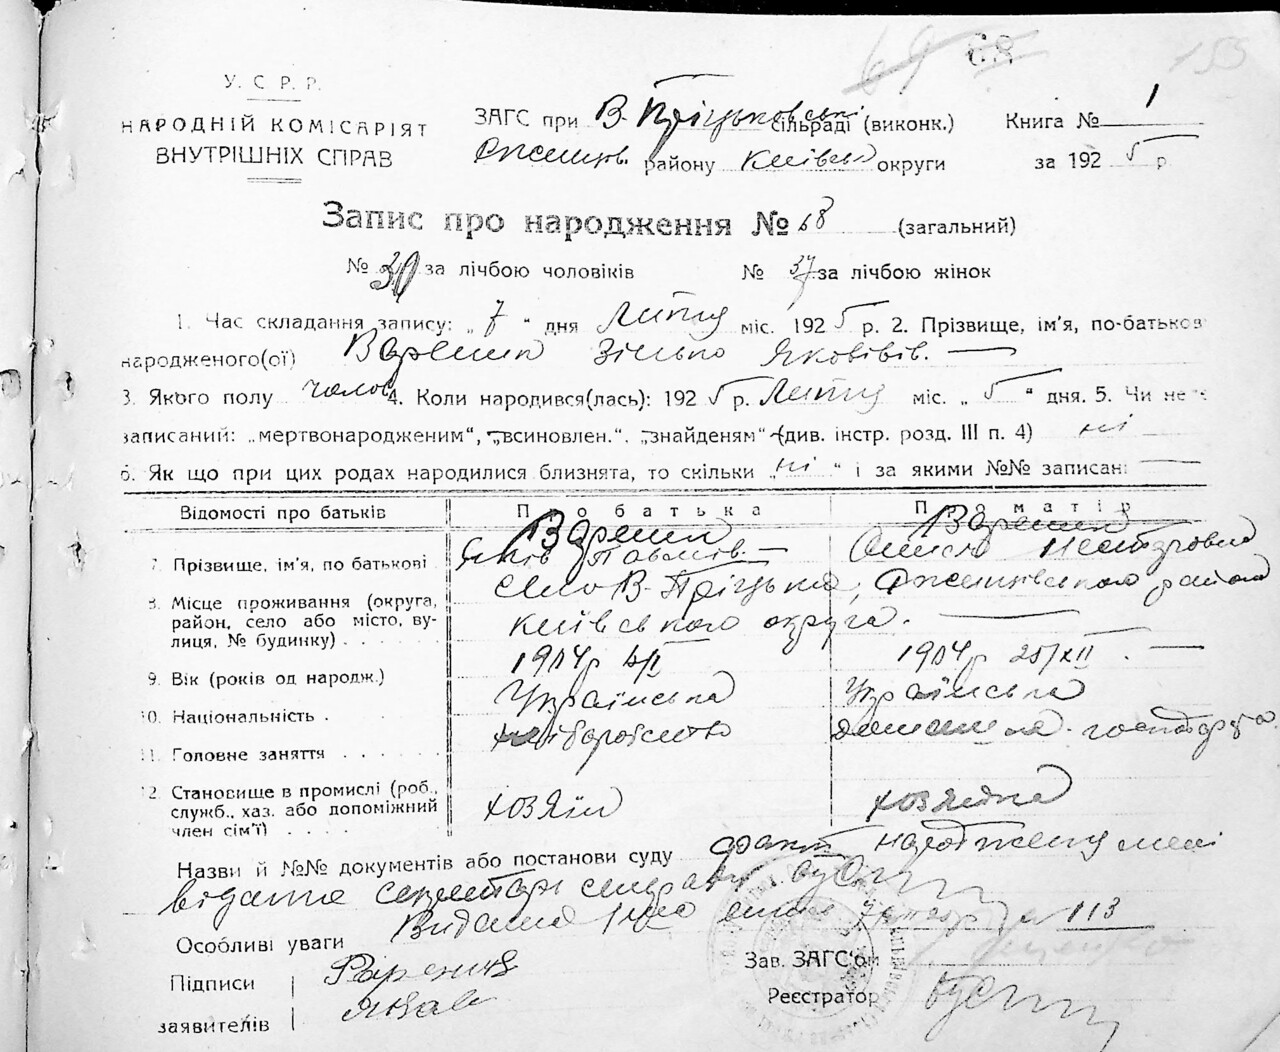 69 68 155
У. С. Р. Р.
НАРОДНІЙ КОМІСАРІЯТ
ВНУТРІШНІХ СПРАВ
ЗАГС при В-Пріцьковські сільраді (виконк.) Книга № 1
району Київськ округи за 1925 р.
Запис про народження № 68 (загальний)
№ 31 за лічбою чоловіків № 37 за лічбою жінок
1. Час складання запису: „7“ дня Лютц міс. 1925 р. 2. Прізвище, ім'я, по-батьков
народженого(ої) Вареник Зінько Яковів. —
3. Якого полу чолов 4. Коли народився(лась): 1925 р. Лютц міс. „5“ дня. 5. Чи не є
записаний: „мертвонародженим“, „всиновлен.“, „знайденям“ (див. інстр. розд. III п. 4) ні
6. Як що при цих родах народилися близнята, то скільки „ні“ і за якими №№ записані —
Відомості про батьків Про батька Про матір
7. Прізвище, ім'я, по батькові Вареник Яків Павлів. — Вареник Несторовна
8. Місце проживання (округа, район, село або місто, вулиця, № будинку) село В-Пріцьки, району
Київського округа. —
9. Вік (років од народж.) 1904 р 1904 р 25/XII. —
10. Національність Українська Українська
11. Головне заняття хліборобство домашня господарка
12. Становище в промислі (роб., служб., хаз. або допоміжний член сім'ї) хозяїн хозяйка
Назви й №№ документів або постанови суду факт народження
видано секретар сільради
Особливі уваги Видана 113
Підписи Вареник Зав. ЗАГС'ом
заявителів Яков Реєстратор